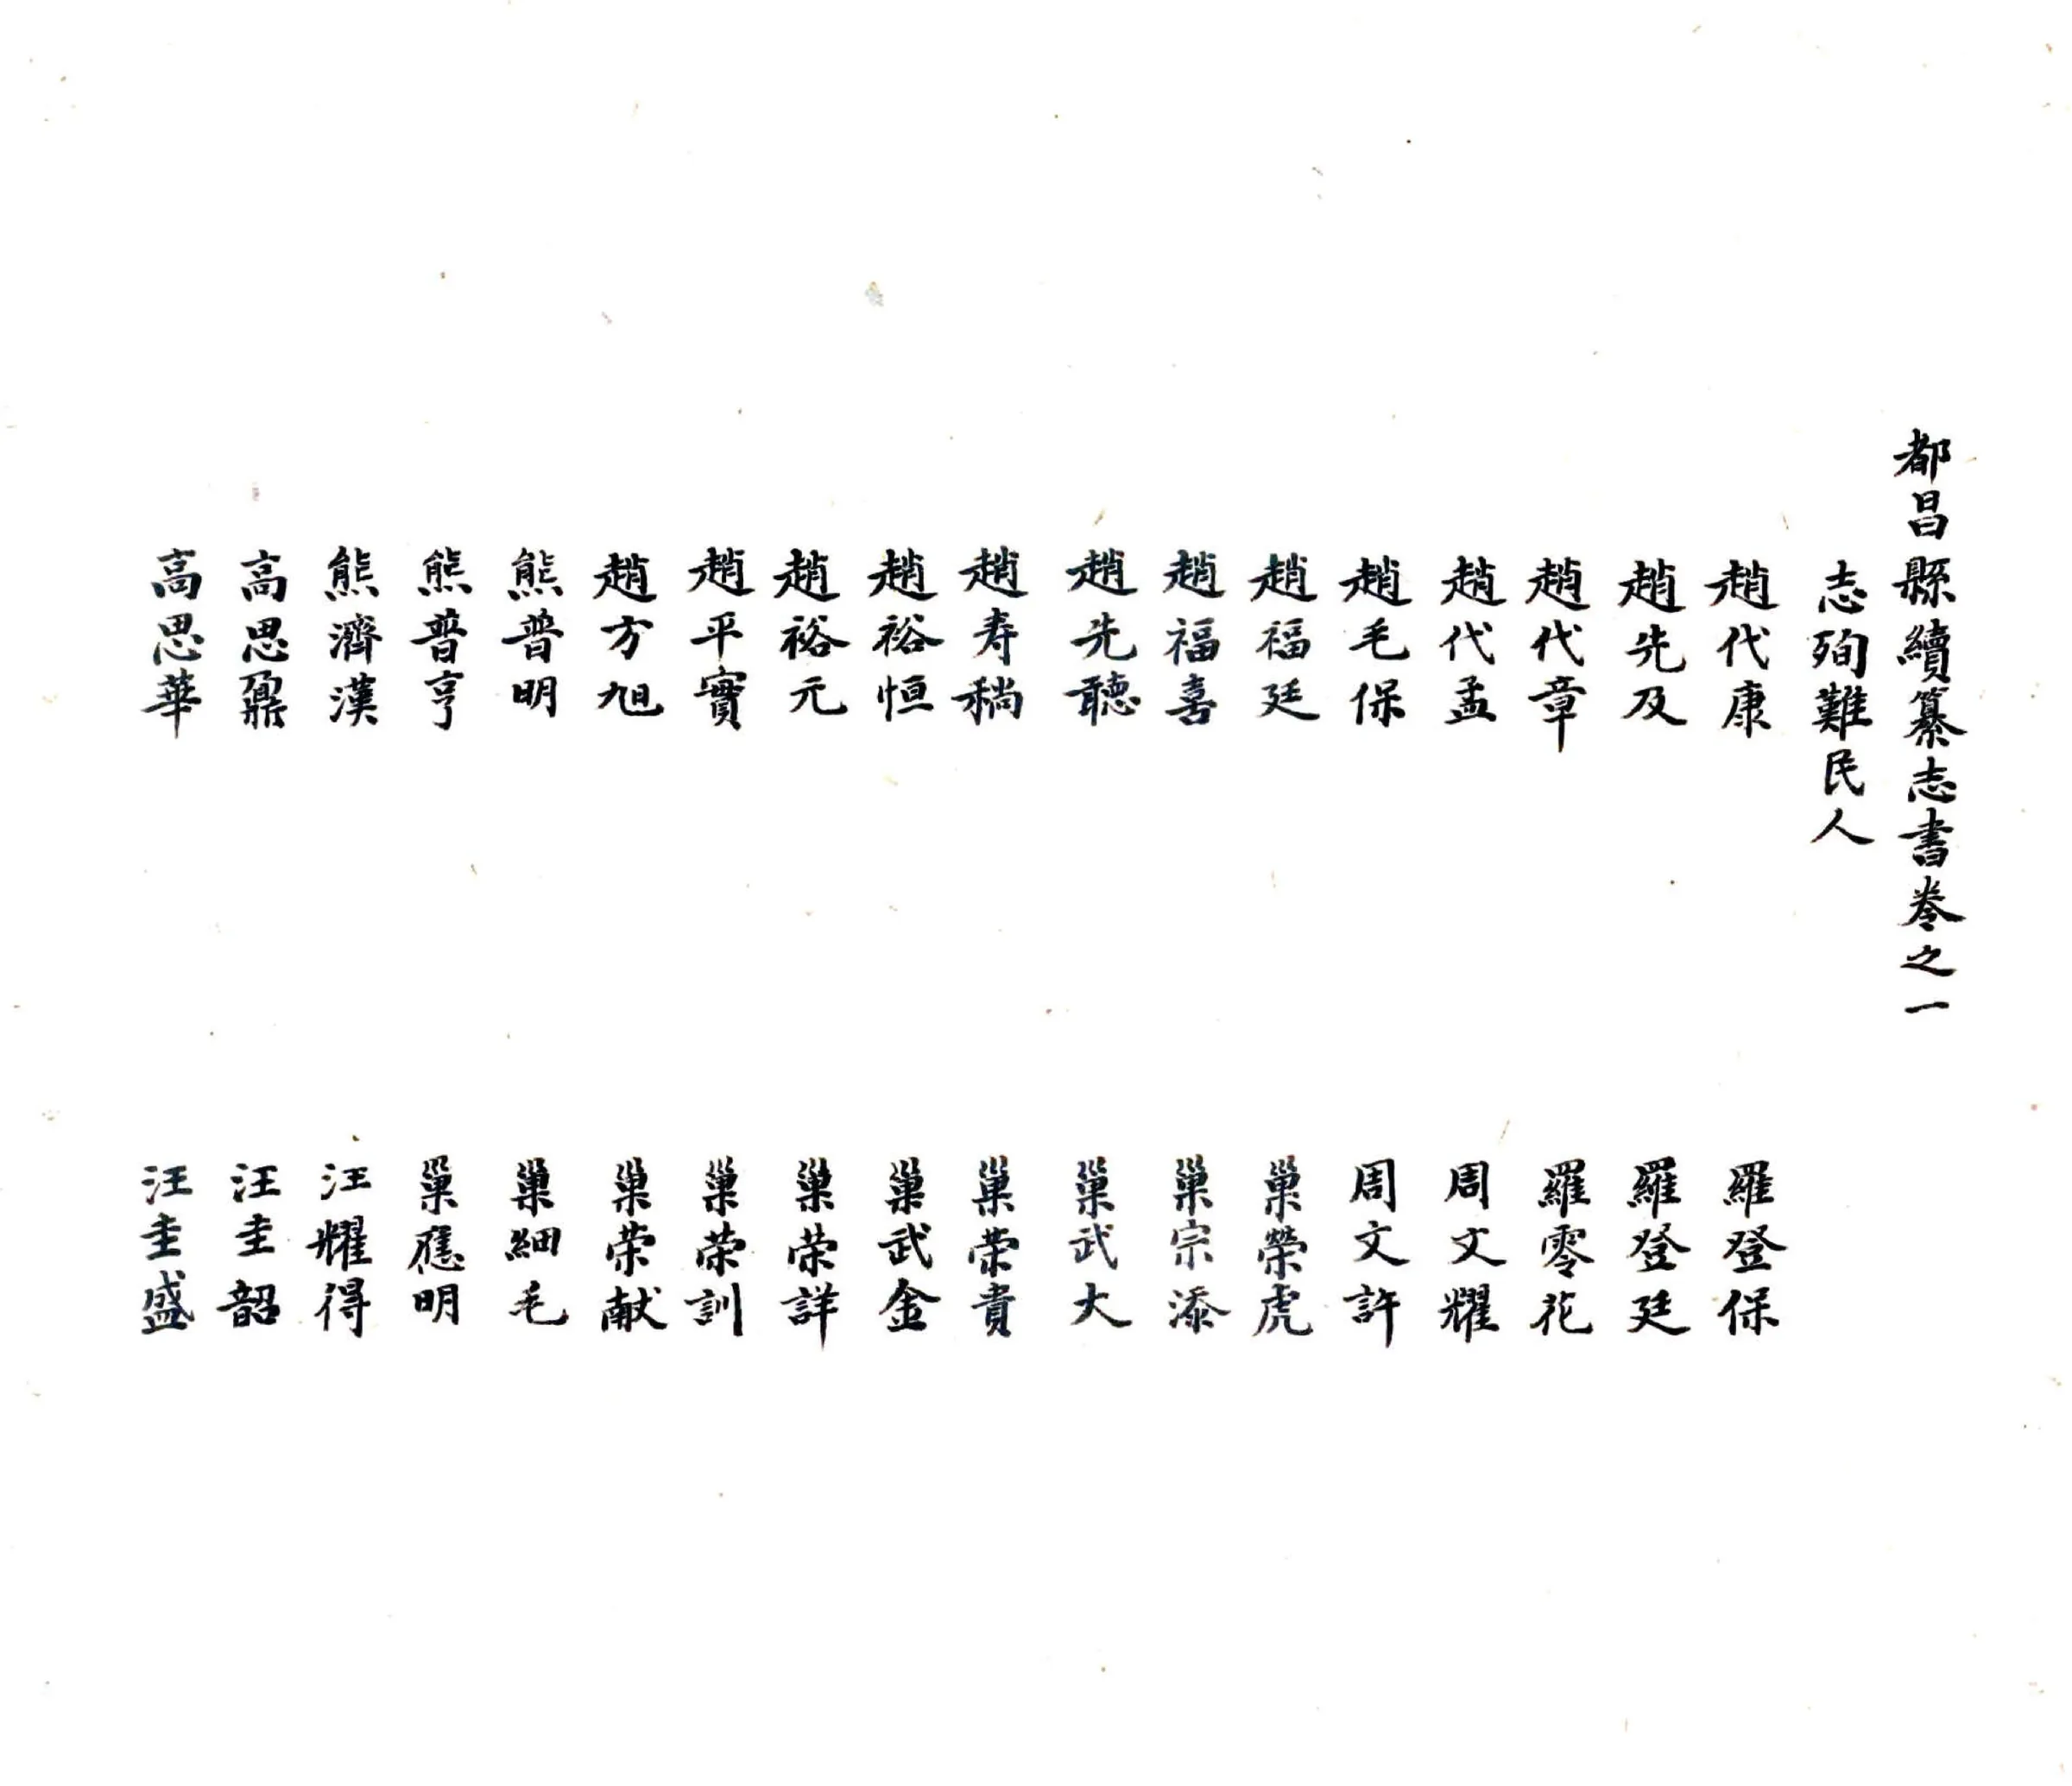 都昌縣續纂志書卷之一
志殉難民人
趙代康
羅登保
趙先及
羅登廷
趙代章
羅零花
趙代孟
周文耀
趙毛保
周文許
趙福廷
巢榮虎
趙福喜
巢宗添
趙先聽
巢武大
趙寿稍
巢荣貴
趙裕恒
巢武金
趙裕元
巢荣詳
趙平實
巢荣訓
趙方旭
巢荣献
熊普明
巢細毛
熊普亨
巢應明
熊濟漢
汪耀得
高思鼐
汪圭韶
高思華
汪圭盛